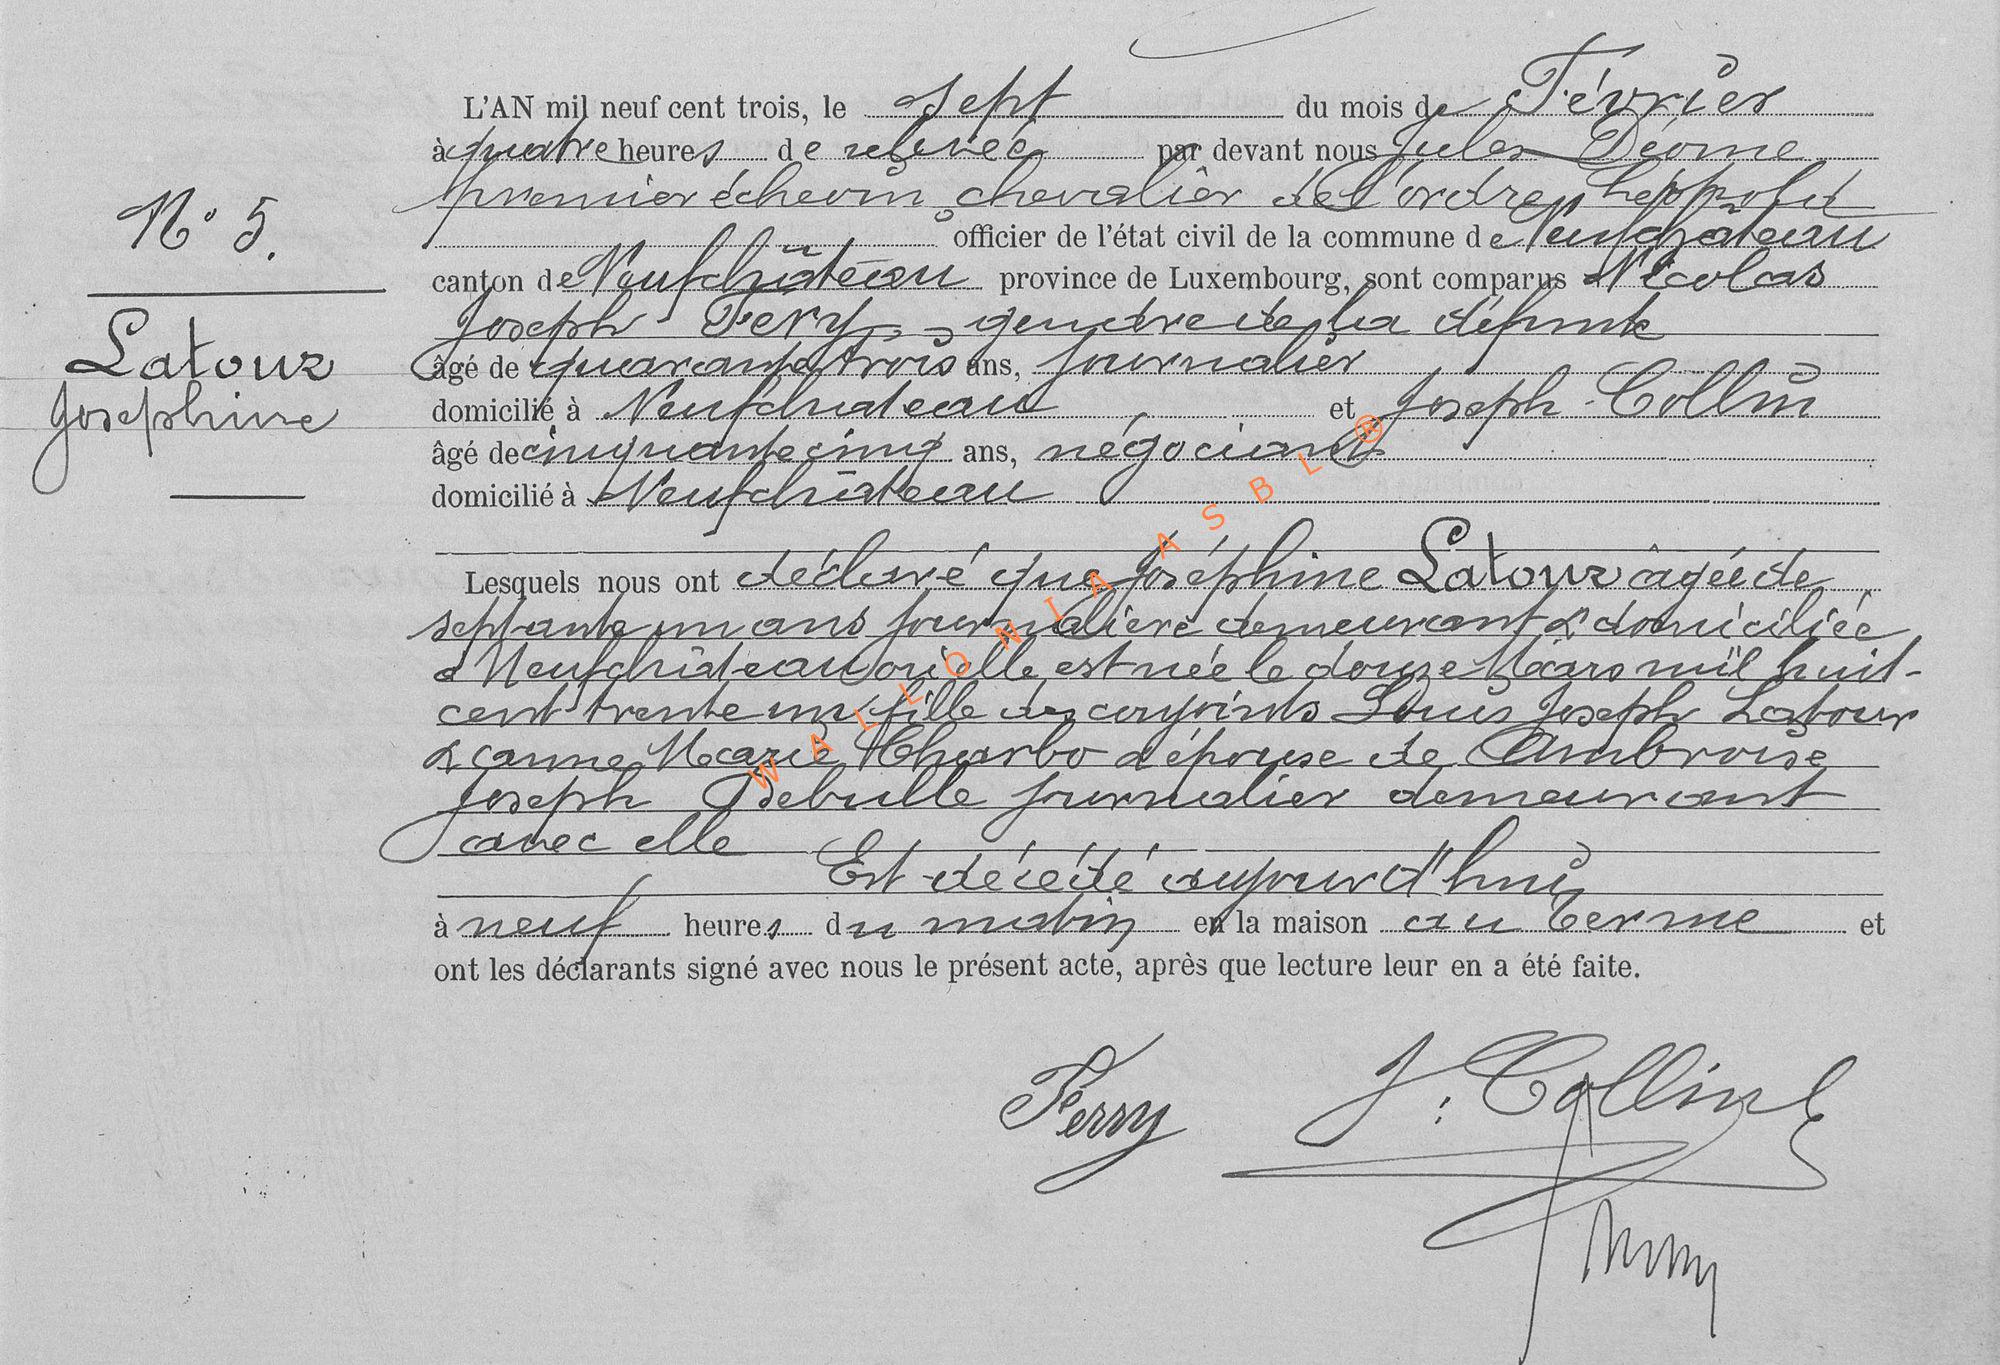 L'AN mil neuf cent trois, le sept du mois de Février
à quatre heures de relevée par devant nous Jules
premier échevin chevalier de l'ordre Léopold
officier de l'état civil de la commune de Neufchâteau
canton de Neufchâteau province de Luxembourg, sont comparus Nicolas
Joseph Fery, gendre de la défunte
âgé de quarante trois ans, journalier
domicilié à Neufchateau et Joseph Collin
âgé de cinquante cinq ans, négociant
domicilié à Neufchâteau
N° 5.
Latour
Joséphine
Lesquels nous ont déclaré que Joséphine Latour âgée de
septante un ans journalière demeurant & domiciliée
à Neufchâteau où elle est née le douze Mars mil huit-
cent trente un fille des conjoints Louis Joseph Latour
& anne Marie Charbo & épouse de Ambroise
Joseph Debulle journalier demeurant
avec elle
Est décédé aujourd'hui
à neuf heures du matin en la maison au Terme et
ont les déclarants signé avec nous le présent acte, après que lecture leur en a été faite.
Ferry J. Collin
WALLONIA ASBL ®